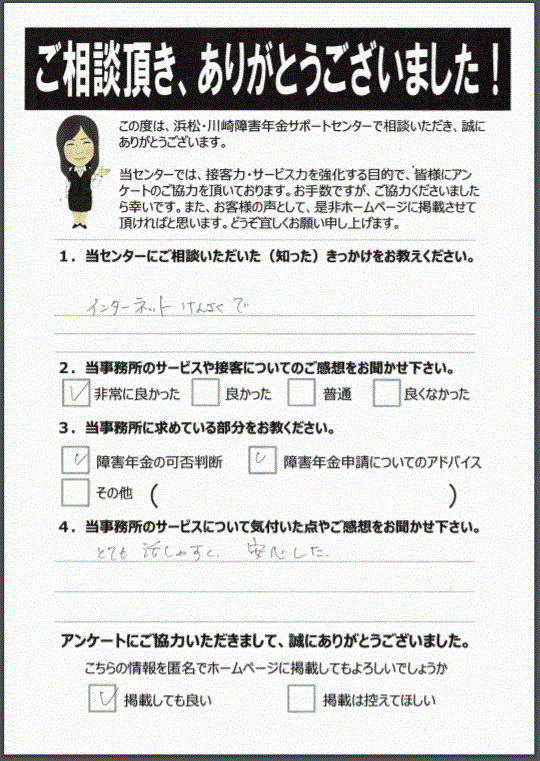 ご相談頂き、ありがとうございました！
この度は、浜松・川崎障害年金サポートセンターで相談いただき、誠に
ありがとうございます。
当センターでは、接客力・サービス力を強化する目的で、皆様にアン
ケートのご協力を頂いております。お手数ですが、ご協力くださいました
ら幸いです。また、お客様の声として、是非ホームページに掲載させて
頂ければと思います。どうぞ宜しくお願い申し上げます。
１．当センターにご相談いただいた（知った）きっかけをお教えください。
インターネットけんさくで
２．当事務所のサービスや接客についてのご感想をお聞かせ下さい。
非常に良かった 良かった 普通 良くなかった
３．当事務所に求めている部分をお教ください。
障害年金の可否判断 障害年金申請についてのアドバイス
その他（ ）
４．当事務所のサービスについて気付いた点やご感想をお聞かせ下さい。
とても話しやすく、安心した。
アンケートにご協力いただきまして、誠にありがとうございました。
こちらの情報を匿名でホームページに掲載してもよろしいでしょうか
掲載しても良い 掲載は控えてほしい